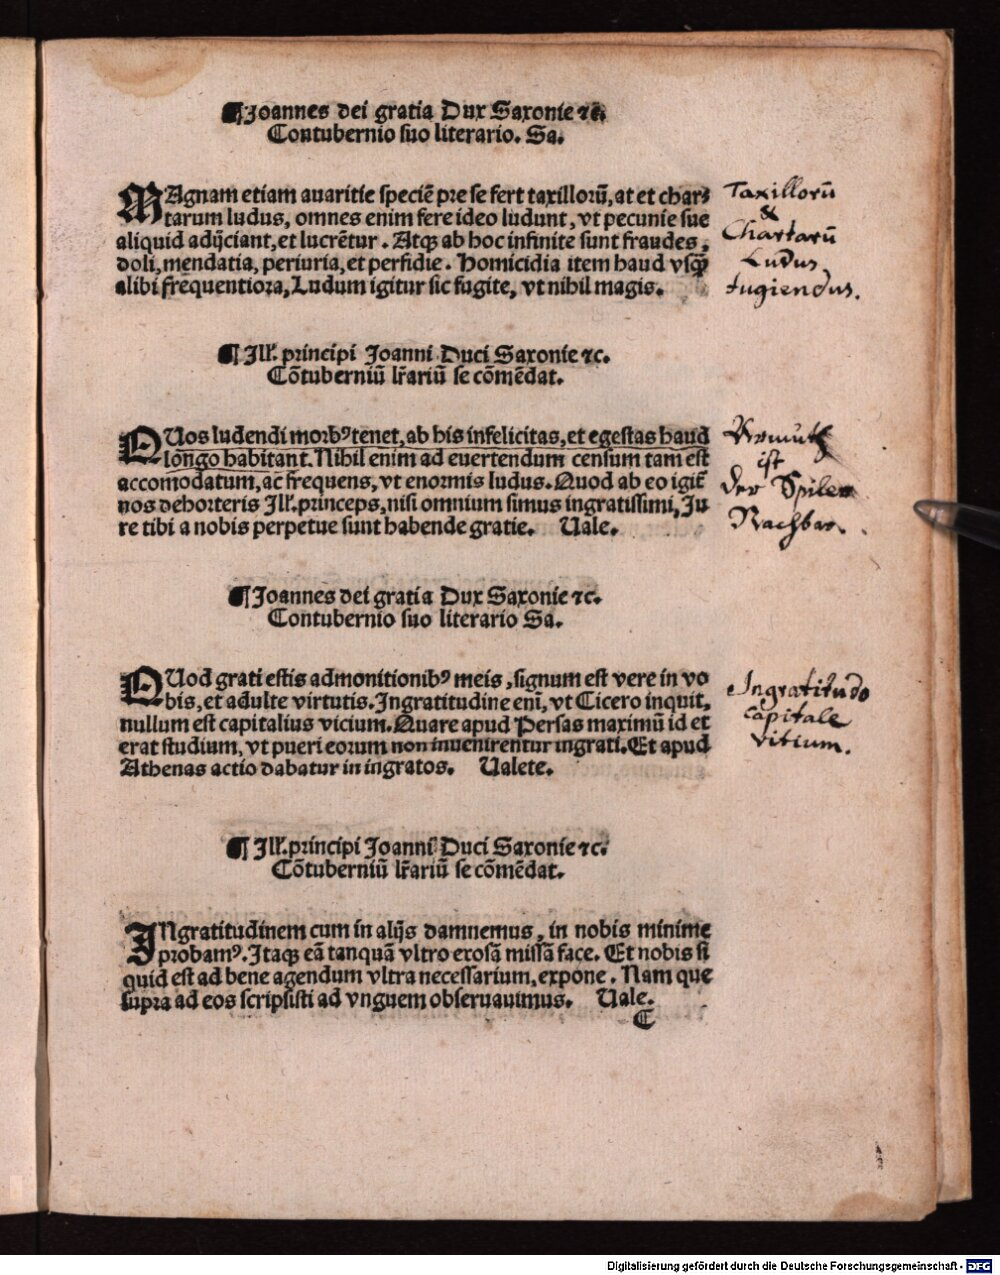 ¶Joannes dei gratia Dux Saxonie ⁊cꝭ.
Contubernio suo literario. Sa.
MAgnam etiam auaritie speciē pre se fert taxillorū, at et char⸗
tarum ludus, omnes enim fere ideo ludunt, vt pecunie sue
aliquid adijciant, et lucrētur. Atqꝫ ab hoc infinite sunt fraudes,
doli, mendatia, periuria, et perfidie. Homicidia item haud vsqꝫ̄
alibi frequentiora, Ludum igitur sic fugite, vt nihil magis.
Taxillorū
&
Chartarū
Ludus
fugiendus.
¶ Ill'. principi Joanni Duci Saxonie ⁊c.
Cōtuberniū lr̄ariū se cōmēdat.
QUos ludendi morbꝰ tenet, ab his infelicitas, et egestas haud
longo habitant. Nihil enim ad euertendum censum tam est
accomodatum, ac frequens, vt enormis ludus. Quod ab eo igit̄
nos dehorteris Ill'. princeps, nisi omnium simus ingratissimi, Ju
re tibi a nobis perpetue sunt habende gratie. Uale.
Armuth
ist
der Spiler
Nachbar.
¶Joannes dei gratia Dux Saxonie ⁊c.
Contubernio suo literario Sa.
QUod grati estis admonitionibꝰ meis, signum est vere in vo
bis, et adulte virtutis. Ingratitudine enī, vt Cicero inquit,
nullum est capitalius vicium. Quare apud Persas maximū id et
erat studium, vt pueri eorum non inuenirentur ingrati. Et apud
Athenas actio dabatur in ingratos. Ualete.
Ingratitudo
capitale
vitium.
¶ Ill'. principi Joanni Duci Saxonie ⁊c.
Cōtuberniū lr̄ariū se cōmēdat.
INgratitudinem cum in alijs damnemus, in nobis minime
probamꝰ. Itaqꝫ eā tanquā vltro exosā missā face. Et nobis si
quid est ad bene agendum vltra necessarium, expone. Nam que
supra ad eos scripsisti ad vnguem obseruauimus. Uale.
C
Digitalisierung gefördert durch die Deutsche Forschungsgemeinschaft - DFG